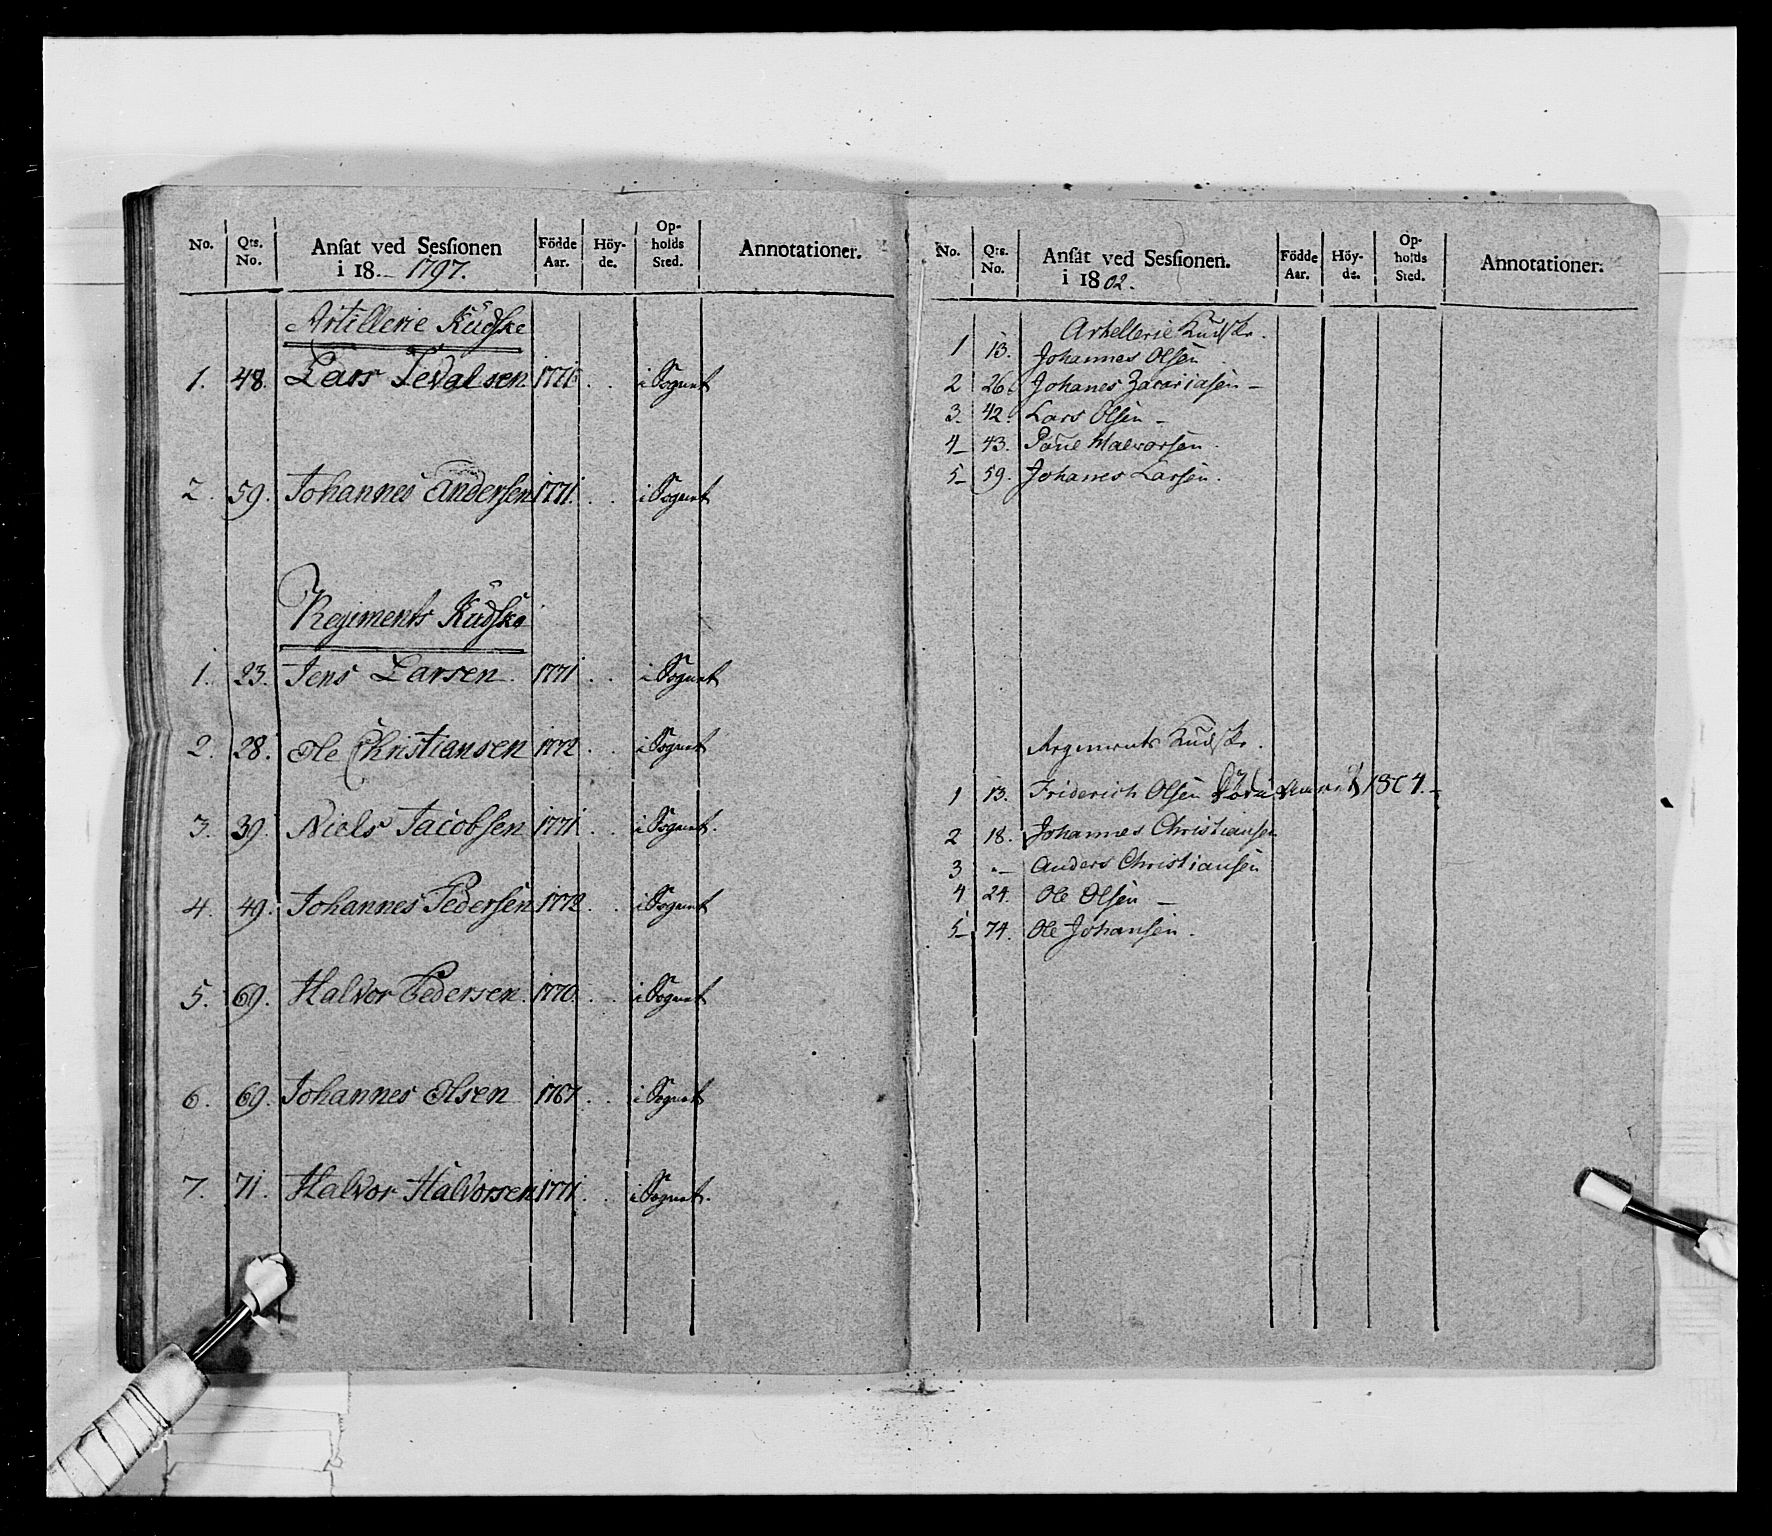 No. Qts. No. Ansat ved Sessionen i 18.- 1797. Födde Aar. Höy-de. Op-holds Sted. Annotationer.
Artillerie Kudske
1. 48. Lars Tevalsen 1776 . . i Sognet
2. 59. Johannes Andersen 1771. . . i Sognet
Regiments Kudske
1. 23. Jens Larsen. 1771 . . i Sognet
2. 28. Ole Christiansen 1772 . . i Sognet
3. 39. Niels Jacobsen 1771 . . i Sognet.
4. 49. Johannes Pedersen 1772 . . i Sognet
5. 69. Halvor Pedersen. 1770. . . i Sognet
6. 69. Johannes Olsen 1767 . . i Sognet
7. 71. Halvor Halvorsen 1771 . . i Sognet.
No. Qts. No. Ansat ved Sessionen. i 1802. Födde Aar. Höy-de. Op-holds Sted. Annotationer.
Arhellerie Kudske.
1 13. Johannes Olsen
2 26. Johanes Zacariasen –
3. 42. Lars Olsen –
4 – 43. Poul Halvorsen.
5 – 59. Johanes Larsen.
Regiments Kudske.
1 13. Friderich Olsen 1804. –
2 18. Johannes Christiansen
3 „– Anders Christiansen
4 24. Ole Olsen –
5 – 74. Ole Johansen.